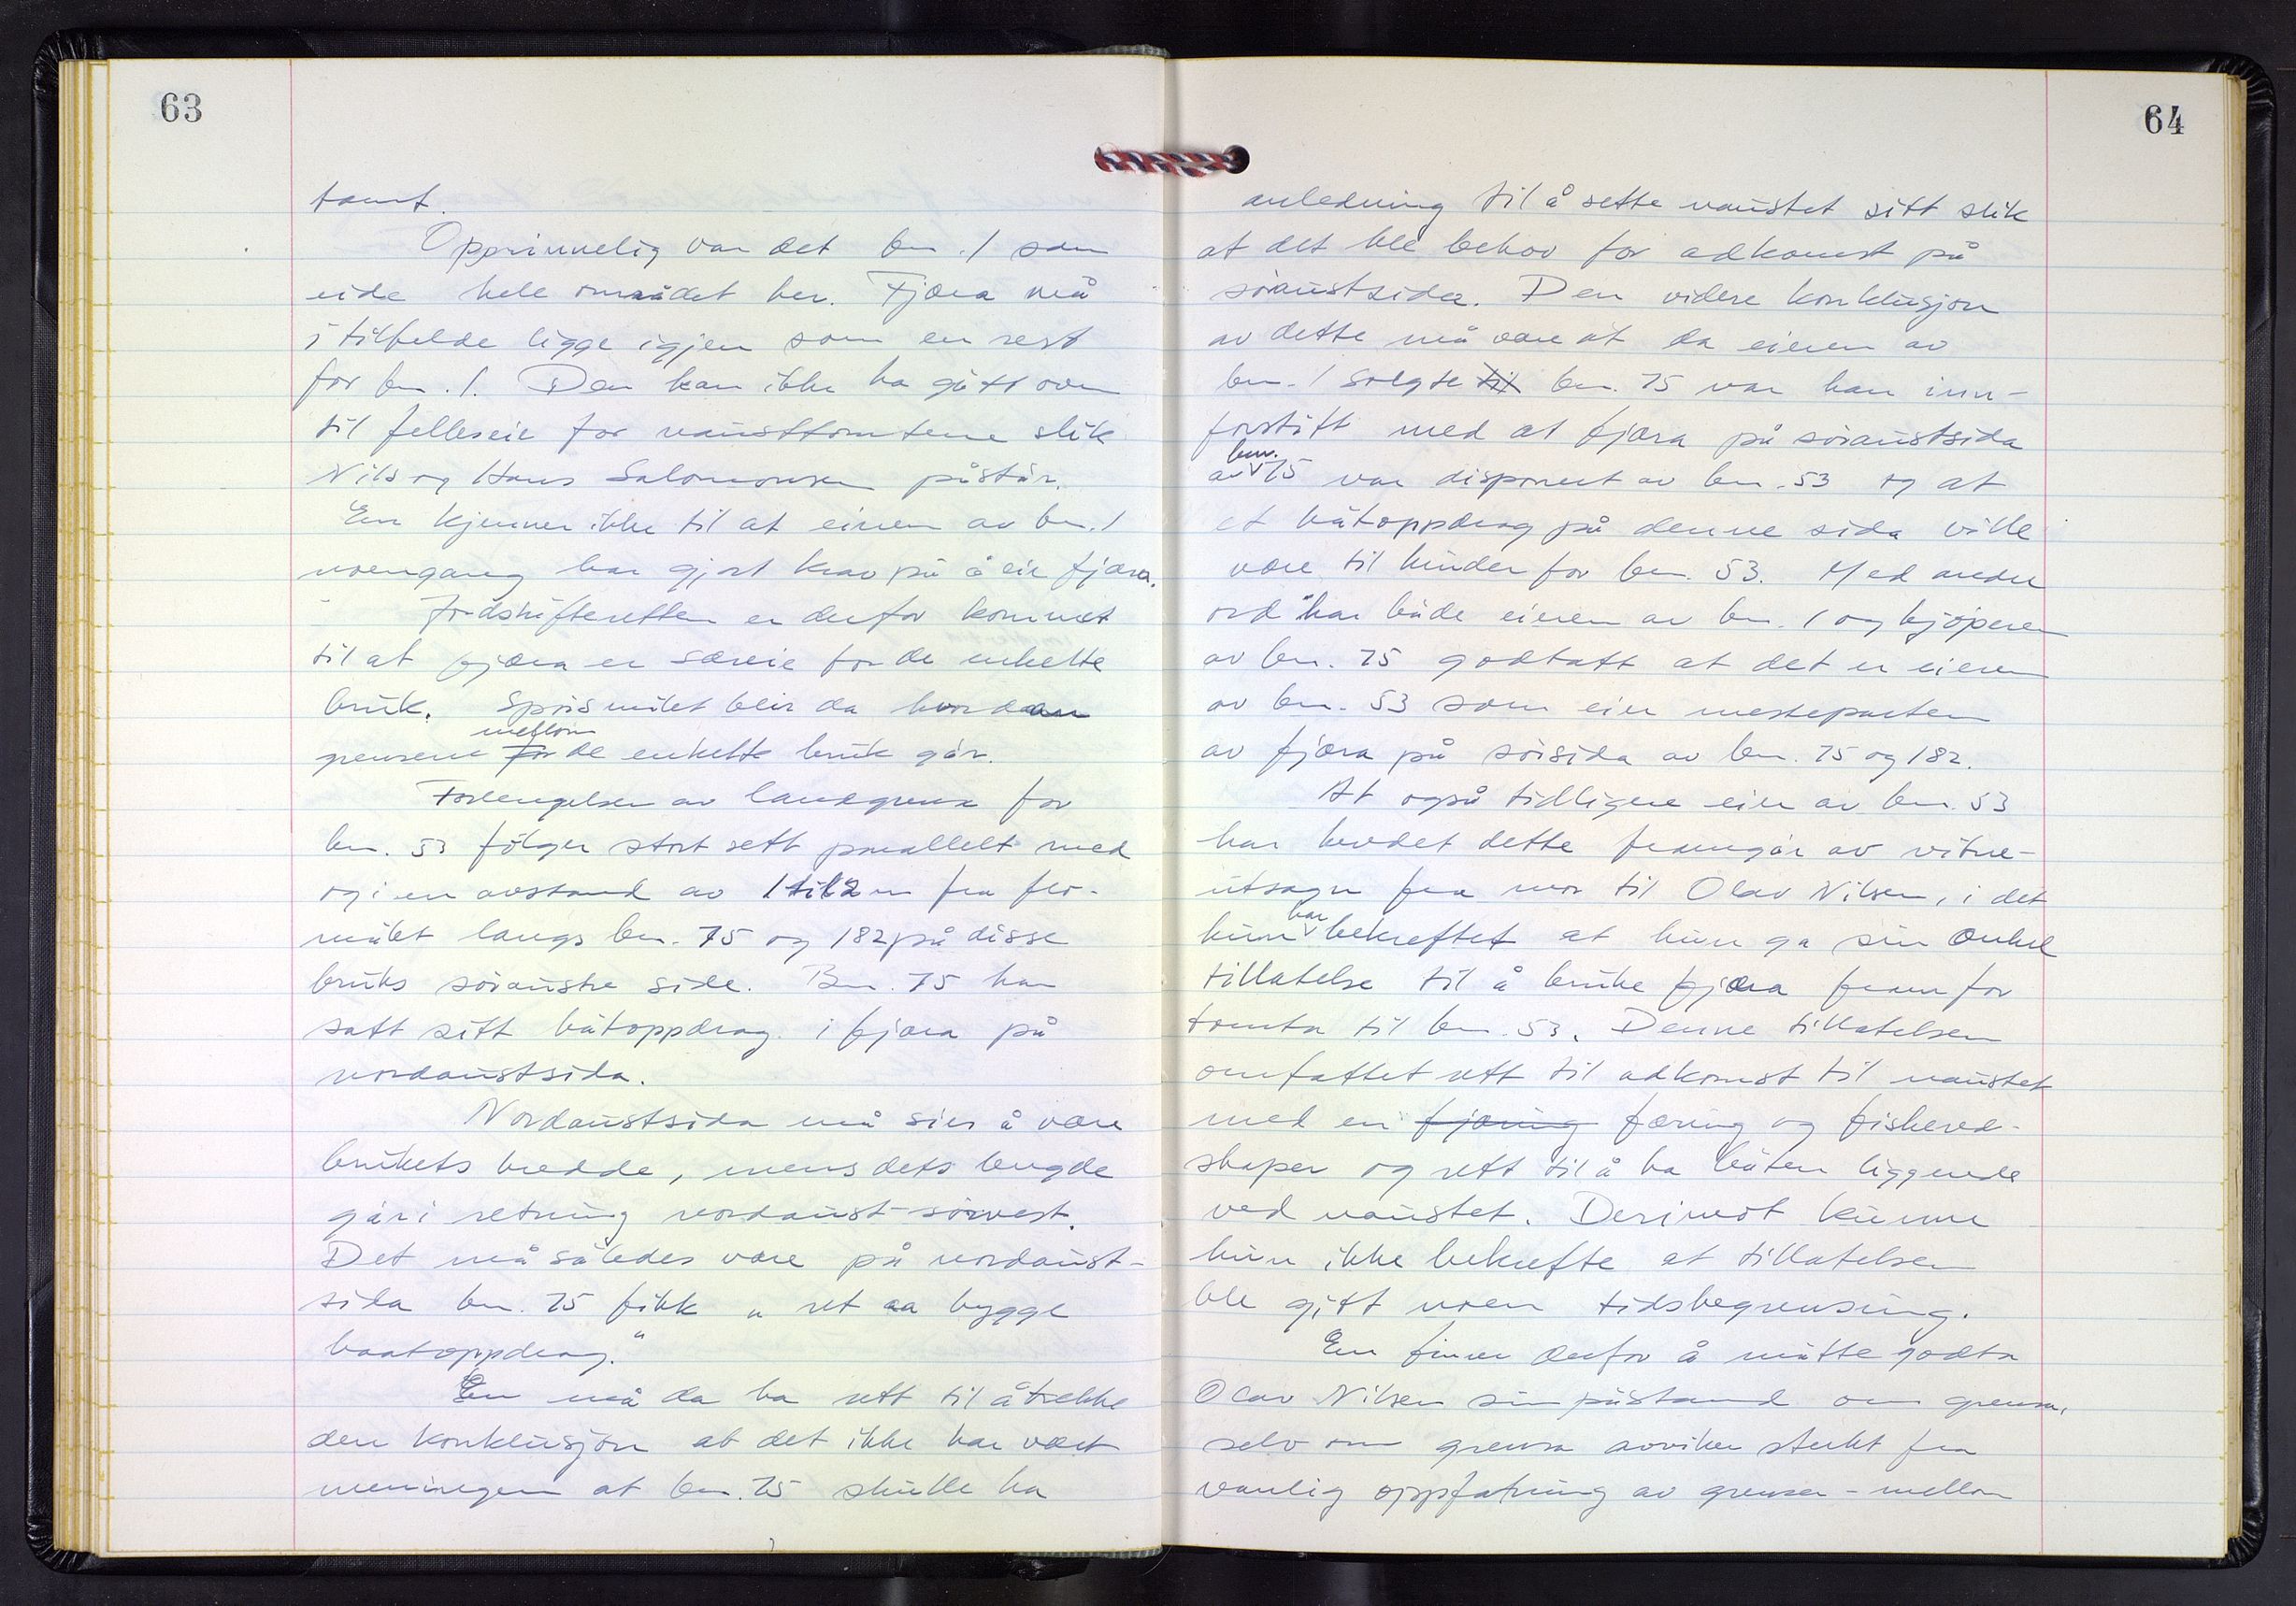 63
tomt.
Opprinnelig var det bn. 1 som
eide hele området her. Fjæra må
i tilfelde ligge igjen som en rest
for bn. 1. Den kan ikke ha gått over
til felleseie for nausttomtene slik
Nils og Hans Salomonsen påstår.
En kjenner ikke til at eieren av bn. 1
noengang har gjort krav på å eie fjæra.
Jordskifteretten er derfor kommet
til at fjæra er særeie for de enkelte
bruk. Spörsmålet blir da hvordan
mellom
grensene for de enkelte bruk går.
Forlengelsen av landgrensa for
bn. 53 fölger stort sett parallelt med
og i en avstand av 1 til 2 m fra flo-
målet langs bn. 75 og 182 på disse
bruks söraustre side. Bn. 75 har
satt sitt båtoppdrag i fjæra på
nordaustsida.
Nordaustsida må sies å være
brukets bredde, mens dets lengde
går i retning nordaust-sörvest.
Det må således være på nordaust-
sida bn. 75 fikk „ret aa bygge
baatoppdrag."
En må da ha rett til å trekke
den konklusjon at det ikke har vært
meningen at bn. 75 skulle ha
64
anledning til å sette naustet sitt slik
at det ble behov for adkomst på
söraustsida. Den videre konklusjon
av dette må være at da eieren av
bn. 1 solgte til bn. 75 var han inn-
forstått med at fjæra på söraustsida
bnr.
av 75 var disponert av bn. 53 og at
et båtoppdrag på denne sida ville
være til hinder for bn. 53. Med andre
ord har både eieren av bn. 1 og kjöperen
av bn. 75 godtatt at det er eieren
av bn. 53 som eier mesteparten
av fjæra på sörsida av bn. 75 og 182.
At også tidligere eier av bn. 53
har hevdet dette framgår av vitne-
utsagn fra mor til Olav Nilsen, i det
har
hun bekreftet at hun ga sin onkel
tillatelse til å bruke fjæra fram for
tomta til bn. 53. Denne tillatelsen
omfattet rett til adkomst til naustet
med en fjæring færing og fiskered-
skaper og rett til å ha båten liggende
ved naustet. Derimot kunne
hun ikke bekrefte at tillatelsen
ble gitt noen tidsbegrensing.
En finner derfor å måtte godta
Olav Nilsen sin påstand om grensa,
selv om grensa avviker sterkt fra
vanlig oppfatning av grenser - mellom